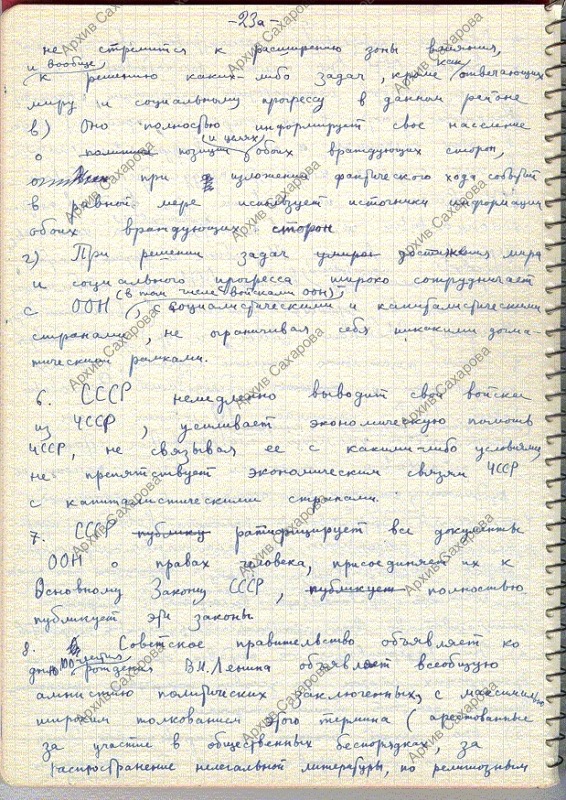 -23а-
не стремится к расширению зоны влияния,
и вообще как
к решению каких-либо задач, кроме отвечающих
миру и социальному прогрессу в данном районе
в) Оно полностью информирует свое население
и целях
о позиции обоих враждующих сторон,
при изложении фактического хода событий
в равной мере использует источники информации
обоих враждующих сторон
г) При решении задач достижения мира
и социального прогресса широко сотрудничает
(в том числе войсками ООН)
с ООН, с социалистическими и капиталистическими
странами, не ограничивая себя никакими догма-
тическими рамками.
6. СССР немедленно выводит свои войска
из ЧССР, усиливает экономическую помощь
ЧССР, не связывая ее с какими-либо условиями,
не препятствует экономическим связям ЧССР
с капиталистическими странами.
7. СССР публику ратифицирует все документы
ООН о правах человека, присоединяет их к
Основному Закону СССР, публикует полностью
публикует эти законы
8. Советское правительство объявляет ко
дню 100-летия рождения В.И.Ленина объявляет всеобщую
амнистию политических заключенных, с максимально
широким толкованием этого термина (арестованные
за участие в общественных беспорядках, за
распространение нелегальной литературы, по религиозным
Архив Сахарова